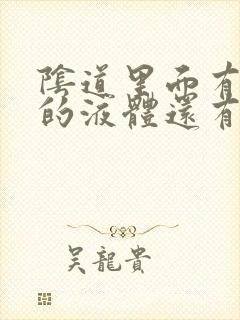 陰道里面有
的液體還有
吳龍貴